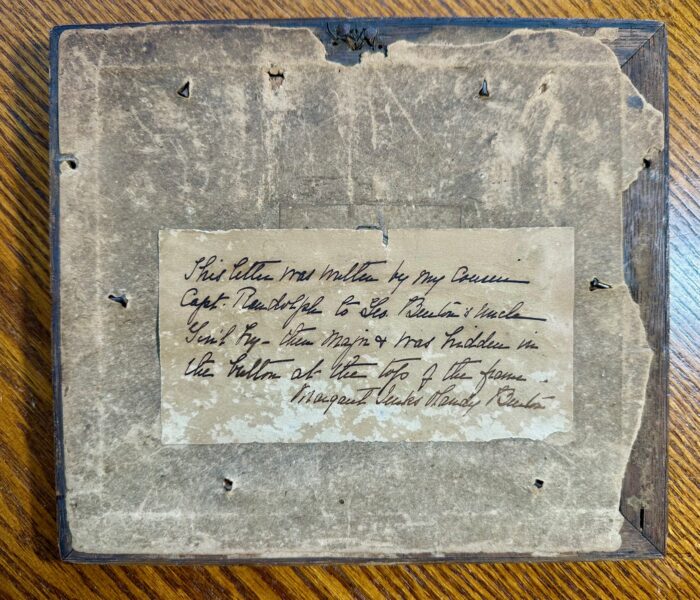 This letter was written by my cousin
Capt. Randolph to Geo. Benton's uncle
Gen'l Fry - then Major & was hidden in
the button at the top of the frame.
Margaret Handy Benton